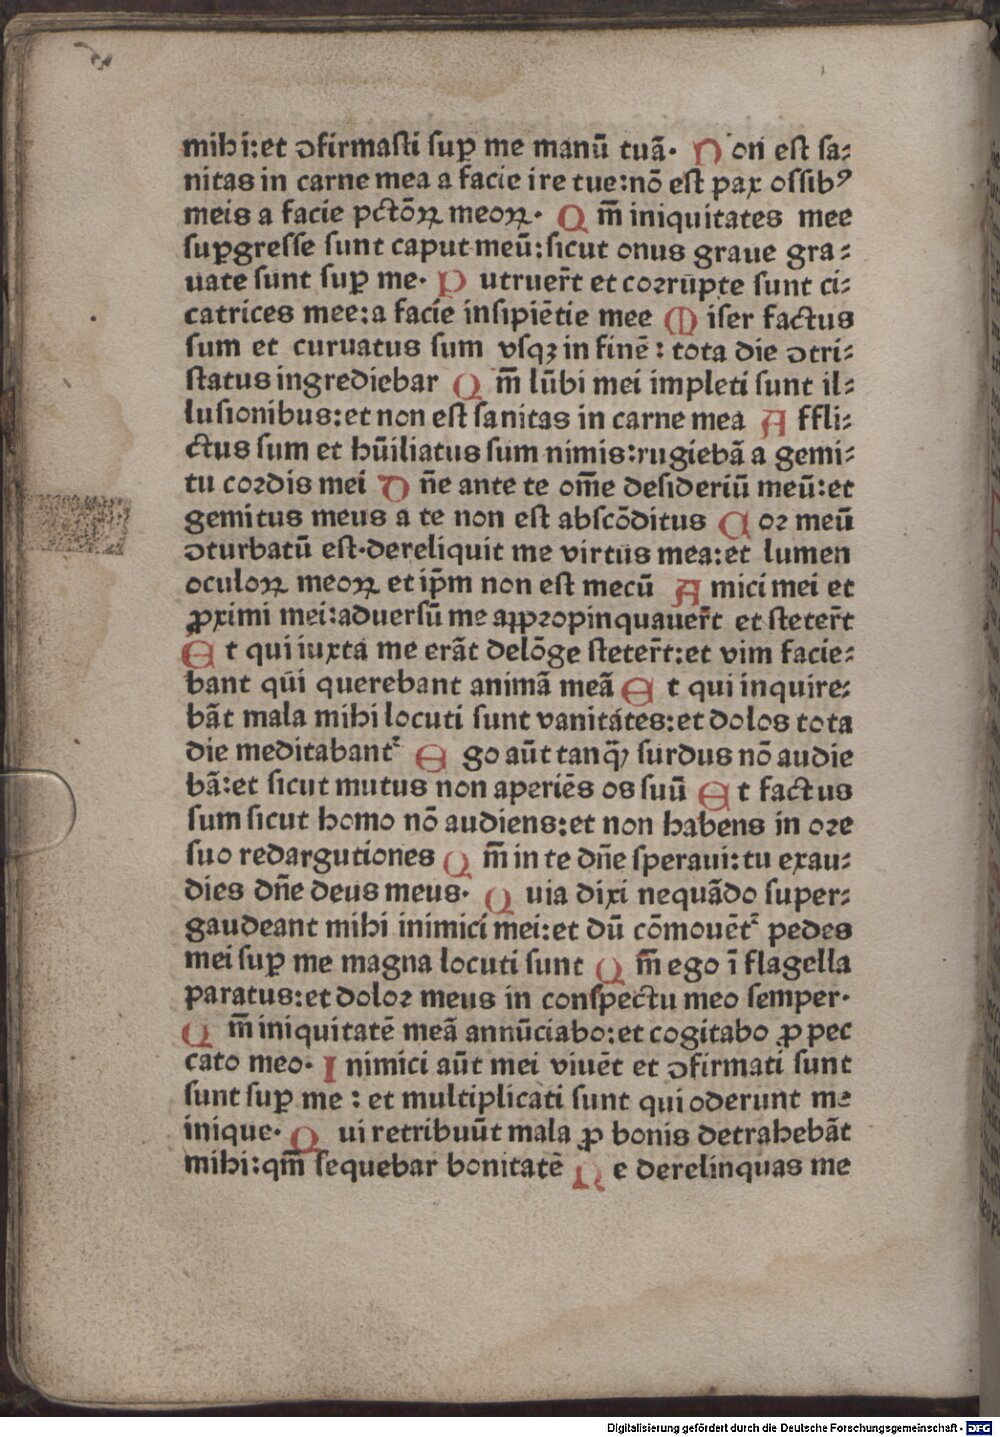 mihi:et ↄfirmasti suꝑ me manū tuā· N on est sa⸗
nitas in carne mea a facie ire tue:nō est pax ossibꝰ
meis a facie pctōꝝ meoꝝ· Q m̄ iniquitates mee
suꝑgresse sunt caput meū:sicut onus graue gra⸗
uate sunt suꝑ me· P utruer̄t et corrupte sunt ci⸗
catrices mee:a facie insipiētie mee M iser factus
sum et curuatus sum vsqꝫ in finē: tota die ↄtri⸗
status ingrediebar Q m̄ lūbi mei impleti sunt il⸗
lusionibus:et non est sanitas in carne mea A ffli⸗
ctus sum et hūiliatus sum nimis:rugiebā a gemi⸗
tu cordis mei D n̄e ante te om̄e desideriū meū:et
gemitus meus a te non est abscōditus C or meū
ↄturbatū est·dereliquit me virtus mea:et lumen
oculoꝝ meoꝝ et ip̄m non est mecū A mici mei et
ꝓximi mei:aduersū me appropinquauer̄t et steter̄t
E t qui iuxta me erāt delōge steter̄t:et vim facie⸗
bant qūi querebant animā meā E t qui inquire⸗
bāt mala mihi locuti sunt vanitates:et dolos tota
die meditabantᷣ E go aūt tanq̄ꝫ surdus nō audie
bā:et sicut mutus non aperiēs os suū E t factus
sum sicut homo nō audiens:et non habens in ore
suo redargutiones Q m̄ in te dn̄e speraui:tu exau⸗
dies dn̄e deus meus· Q uia dixi nequādo super⸗
gaudeant mihi inimici mei:et dū cōmouētᷣ pedes
mei suꝑ me magna locuti sunt Q m̄ ego ī flagella
paratus:et dolor meus in conspectu meo semper·
Q m̄ iniquitatē meā annūciabo:et cogitabo ꝓ pec
cato meo· I nimici aūt mei viuēt et ↄfirmati sunt
sunt suꝑ me : et multiplicati sunt qui oderunt me
inique· Q ui retribuūt mala ꝓ bonis detrahebāt
mihi:qm̄ sequebar bonitatē N e derelinquas me
Digitalisierung gefördert durch die Deutsche Forschungsgemeinschaft - DFG